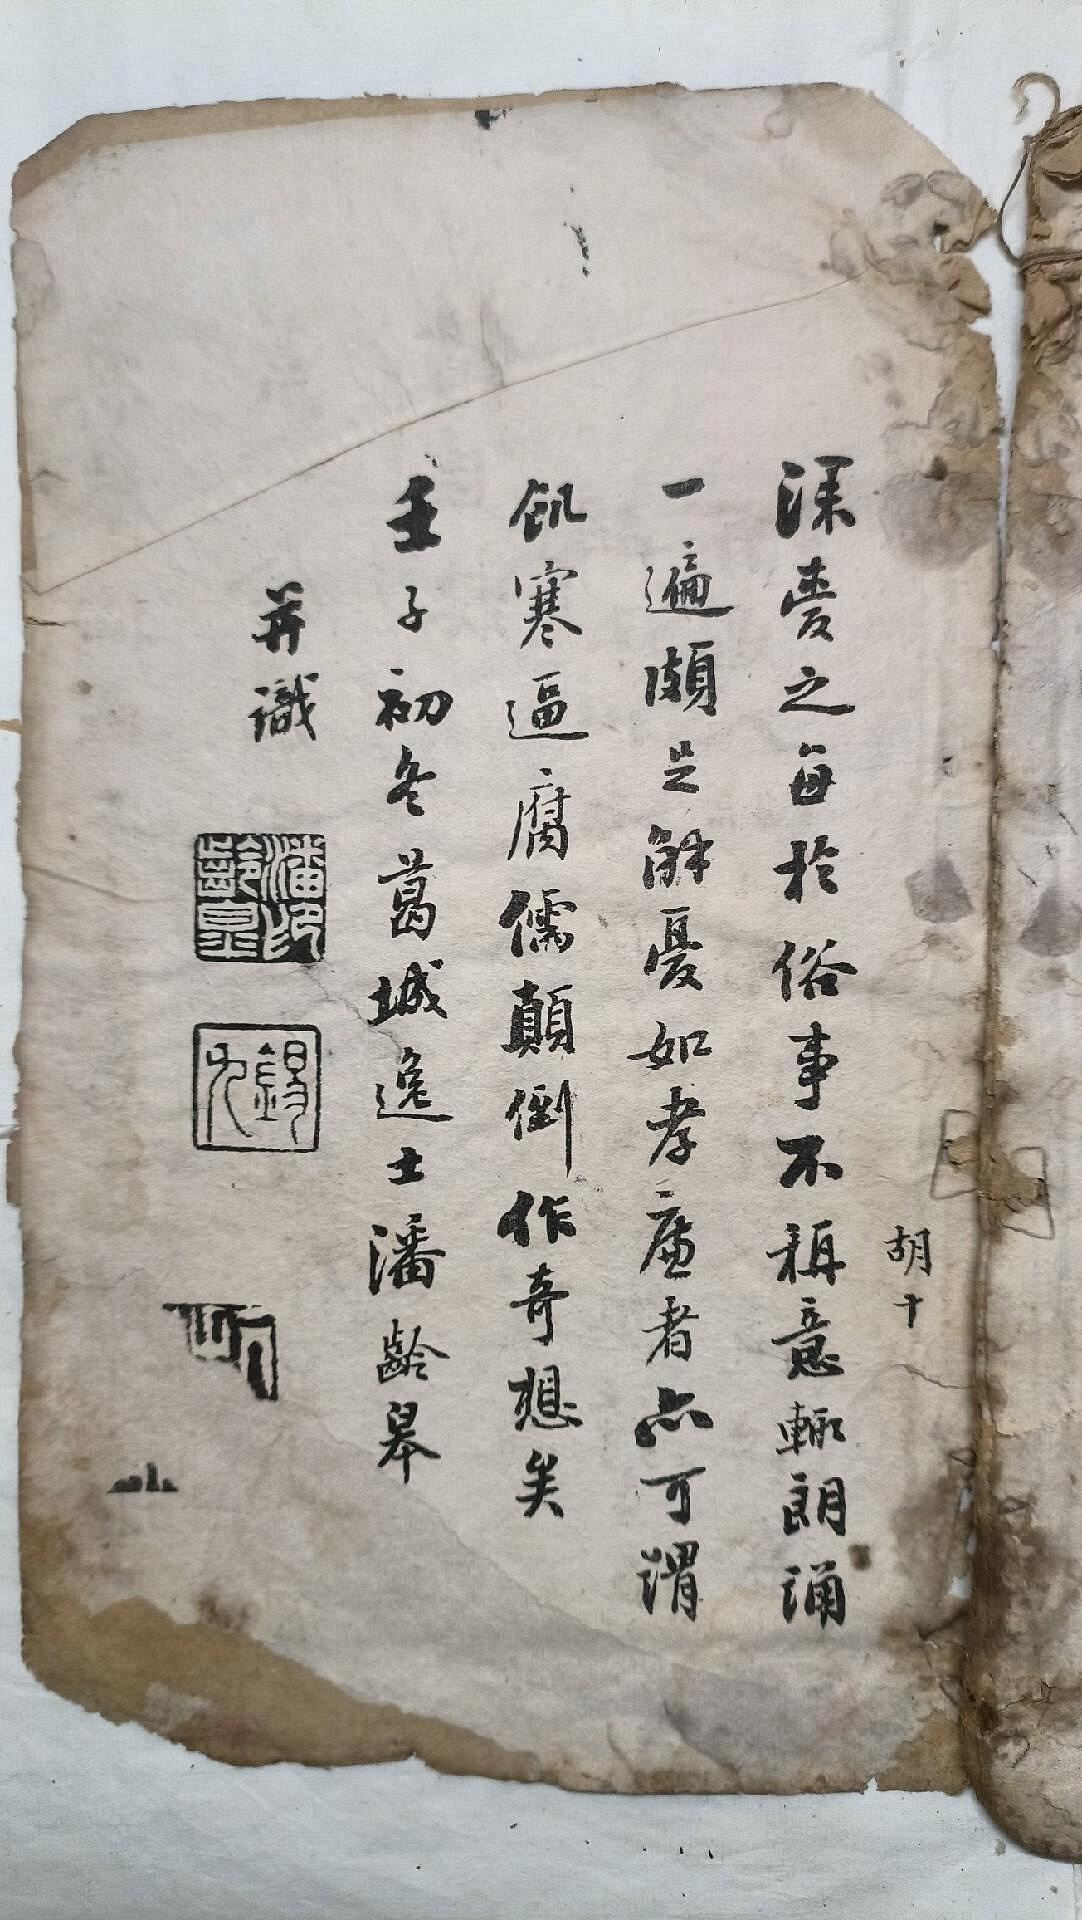 胡十
深愛之每於俗事不稱意輒朗誦
一遍頗足解憂如孝廉者亦可謂
飢寒逼腐儒顛倒作奇想矣
壬子初冬葛城逸士潘齡皋
并識
潘印
齡皋
錫九